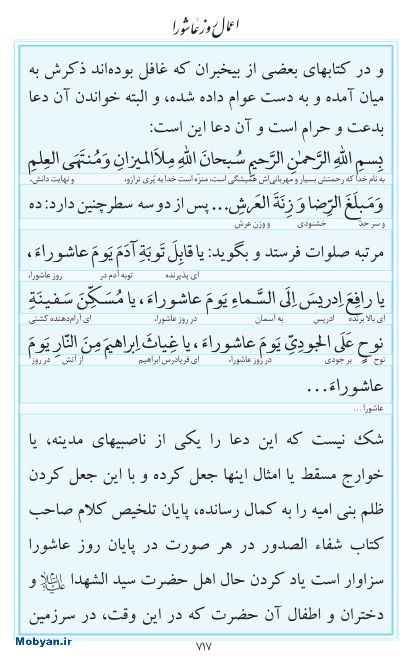 اعمال روز عاشورا
و در کتابهای بعضی از بیخبران که غافل بوده‌اند ذکرش به
میان آمده و به دست عوام داده شده، و البته خواندن آن دعا
بدعت و حرام است و آن دعا این است:
بِسمِ اللهِ الرَّحمٰنِ الرَّحیمِ سُبحانَ اللهِ مِلاَالمیزانِ وَمُنتَهَی العِلمِ
به نام خدا که رحمتش بسیار و مهربانی‌اش همیشگی است، منزّه است خدا به پُری ترازو، و نهایت دانش،
وَمَبلَغَ الرِّضا وَزِنَةَ العَرشِ... پس از دو سه سطر چنین دارد: ده
و سر حدّ خشنودی و وزن عرش
مرتبه صلوات فرستد و بگوید: یا قابِلَ تَوبَةِ آدَمَ یَومَ عاشوراءَ،
ای پذیرنده توبه آدم در روز عاشورا،
یا رافِعَ اِدریسَ اِلَی السَّماءِ یَومَ عاشوراءَ، یا مُسَکِّنَ سَفینَةِ
ای بالا برنده ادریس به آسمان در روز عاشورا، ای آرام‌دهنده کشتی
نوحٍ عَلَی الجودِیِّ یَومَ عاشوراءَ، یا غِیاثَ اِبراهیمَ مِنَ النّارِ یَومَ
نوح بر جودی در روز عاشورا، ای فریادرس ابراهیم از آتش در روز
عاشوراءَ...
عاشورا...
شک نیست که این دعا را یکی از ناصبیهای مدینه، یا
خوارج مسقط یا امثال اینها جعل کرده و با این جعل کردن
ظلم بنی امیه را به کمال رسانده، پایان تلخیص کلام صاحب
کتاب شفاء الصدور در هر صورت در پایان روز عاشورا
سزاوار است یاد کردن حال اهل حضرت سید الشهدا و
دختران و اطفال آن حضرت که در این وقت، در سرزمین
۷۱۷
Mobyan.ir